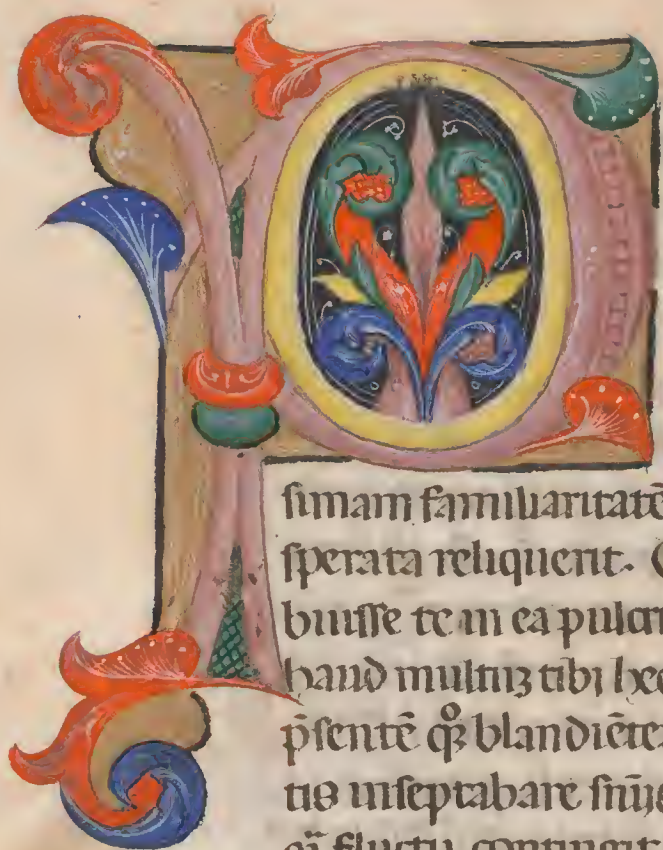 P
ſimam familiaritatē
ſperata reliquerit.
buiſſe te in ea pulcr
haud multuꝫ tibi hec
p̄ſentē qͦꝫ blandiēte
tis inſeptabare ſnĩ
fluctu contingit